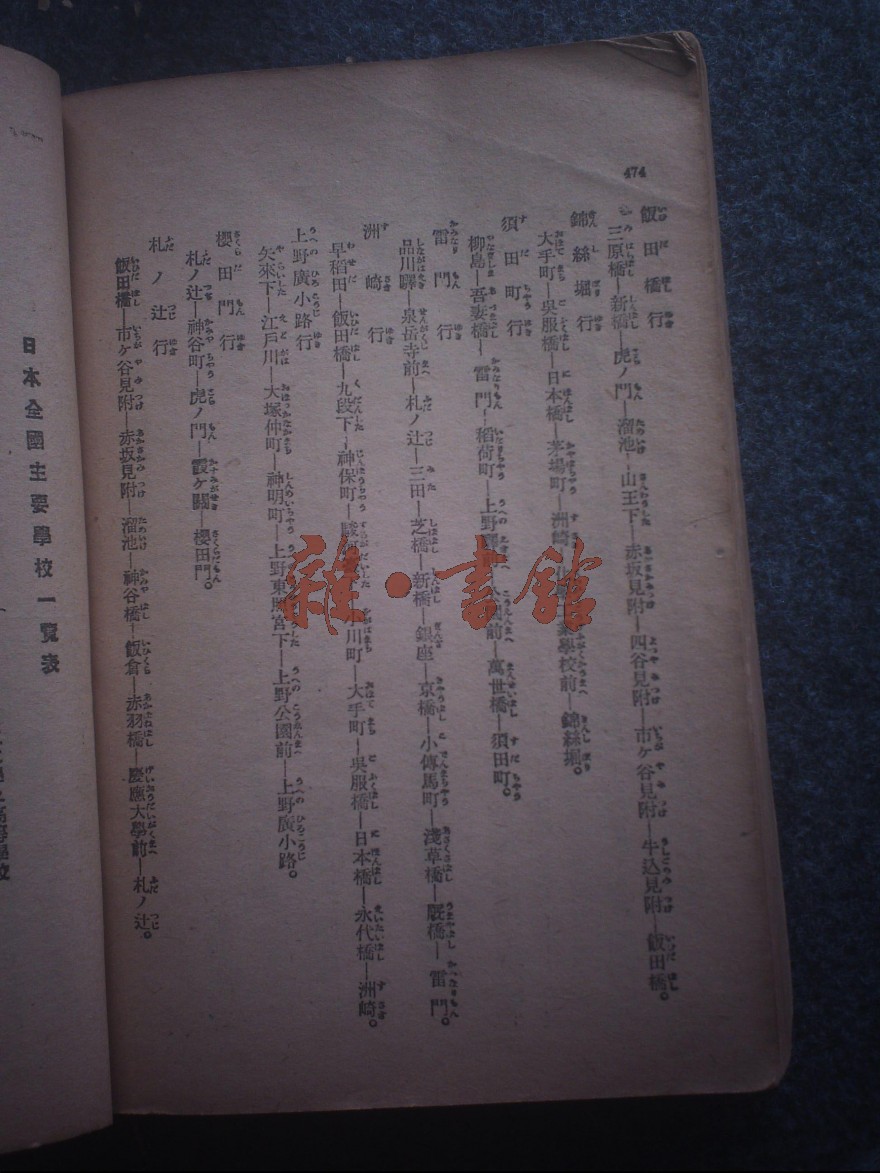 474
飯田橋行
三原橋―新橋―虎ノ門―溜池―山王下―赤坂見附―四谷見附―市ケ谷見附―牛込見附―飯田橋。
錦絲堀行
大手町―呉服橋―日本橋―茅場町―洲崎 學校前―錦絲堀。
須田町行
柳島―吾妻橋―雷門―稻荷町―上野 園前―萬世橋―須田町。
雷門行
品川驛―泉岳寺前―札ノ辻―三田―芝橋―新橋―銀座―京橋―小傳馬町―淺草橋―厩橋―雷門。
洲崎行
早稻田―飯田橋―九段下―神保町― 小川町―大手町―呉服橋―日本橋―永代橋―洲崎。
上野廣小路行
矢來下―江戸川―大塚仲町―神明町―上野東照宮下―上野公園前―上野廣小路。
櫻田門行
札ノ辻―神谷町―虎ノ門―霞ケ關―櫻田門。
札ノ辻行
飯田橋―市ケ谷見附―赤坂見附―溜池―神谷橋―飯倉―赤羽橋―慶應大學前―札ノ辻。
日本全國主要學校一覽表
高等學校
雜·書館